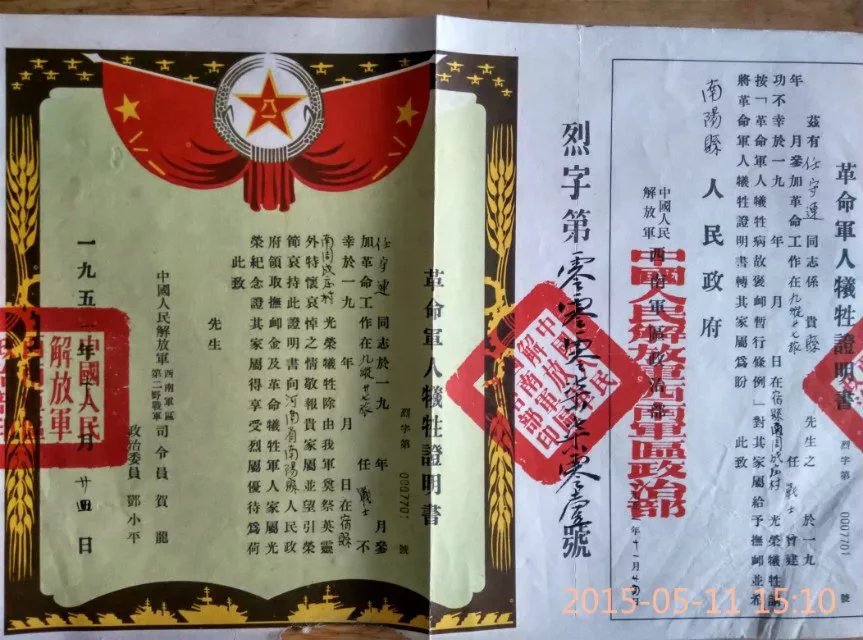 革命軍人犧牲證明書
烈字第 0007701 號
茲有任守連同志係 貴縣 先生之 於一九
年 月參加革命工作在九縱廿七旅 任 戰士 曾建
功不幸於一九 年 月 日在宿縣南周成庄村 光榮犧牲謹
按「革命軍人犧牲病故褒卹暫行條例」對其家屬給予撫卹並希
將革命軍人犧牲證明書轉其家屬爲盼 此致
南陽縣 人民政府
中國人民
解放軍 西南軍區政治部
中國人民解放軍西南軍區政治部
年十二月廿四日
烈字第零零零柒柒零壹號
革命軍人犧牲證明書
烈字第 0007701 號
任守連 同志於一九 年 月參
加革命工作在九縱廿七旅 任 戰士 不
幸於一九 年 月 日在宿縣
南周成庄村 光榮犧牲除由我軍奠祭英靈
外特懷哀悼之情敬報貴家屬並望引榮
節哀持此證明書向河南省南陽縣人民政
府領取撫卹金及革命犧牲軍人家屬光
榮紀念證其家屬得享受烈屬優待爲荷
此致
先生
中國人民解放軍 西南軍區 第二野戰軍
司令員 賀龍
政治委員 鄧小平
一九五一年十二月廿四日
中國人民
解放軍
八一
2015-05-11 15:10